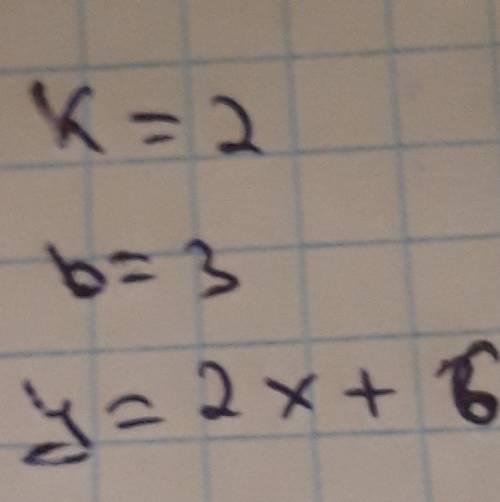 K = 2
b = 3
y = 2x + 6